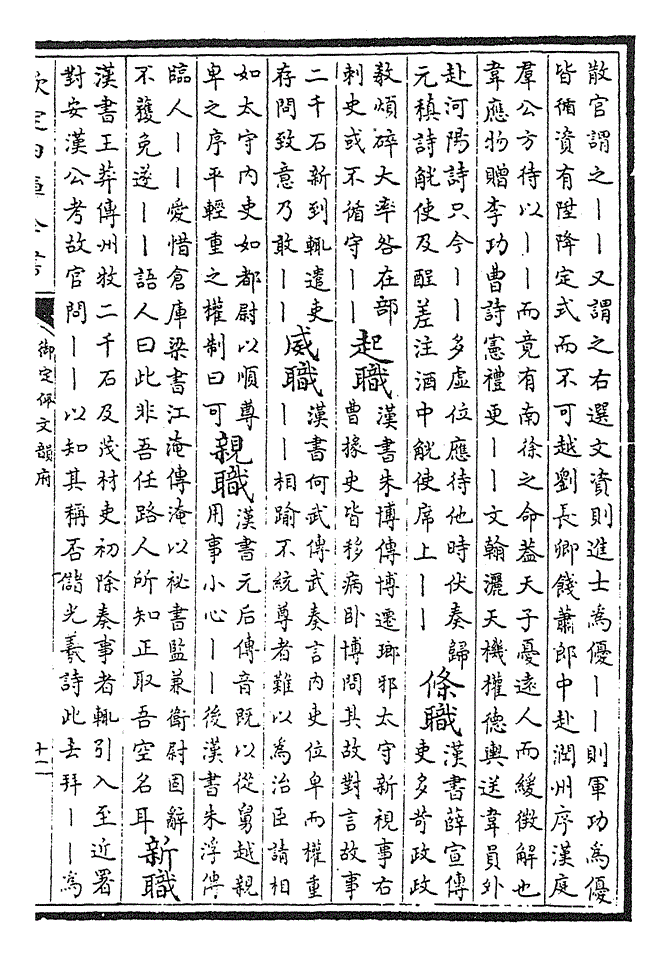 散官謂之丨丨又謂之右選文資則進士為優丨丨則軍功為優
皆循資有陞降定式而不可越劉長卿餞蕭郎中赴潤州序漢庭
羣公方待以丨丨而竟有南徐之命葢天子憂遠人而緩徴解也
韋應物贈李功曹詩憲禮更丨丨文翰灑天機權德輿送韋員外
赴河陽詩只今丨丨多虛位應待他時伏奏歸
元稹詩觥使及酲差注酒中觥使席上丨丨
條職
漢書薛宣傳
吏多苛政政
敎煩碎大率咎在部
刺史或不循守丨丨
起職
漢書朱博傳博遷瑯邪太守新視事右
曹掾史皆移病卧博問其故對言故事
二千石新到輒遣吏
存問致意乃敢丨丨
威職
漢書何武傳武奏言内史位卑而權重
丨丨相踰不統尊者難以為治臣請相
如太守内史如都尉以順尊
卑之序平輕重之權制曰可
親職
漢書元后傳音既以從舅越親
用事小心丨丨後漢書朱浮傳
臨人丨丨愛惜倉庫梁書江淹傳淹以祕書監兼衛尉固辭
不獲免遂丨丨語人曰此非吾任路人所知正取吾空名耳
新職
漢書王莽傳州牧二千石及茂材吏初除奏事者輒引入至近署
對安漢公考故官問丨丨以知其稱否儲光羲詩此去拜丨丨為
欽定四庫全書
御定佩文韻府
十二